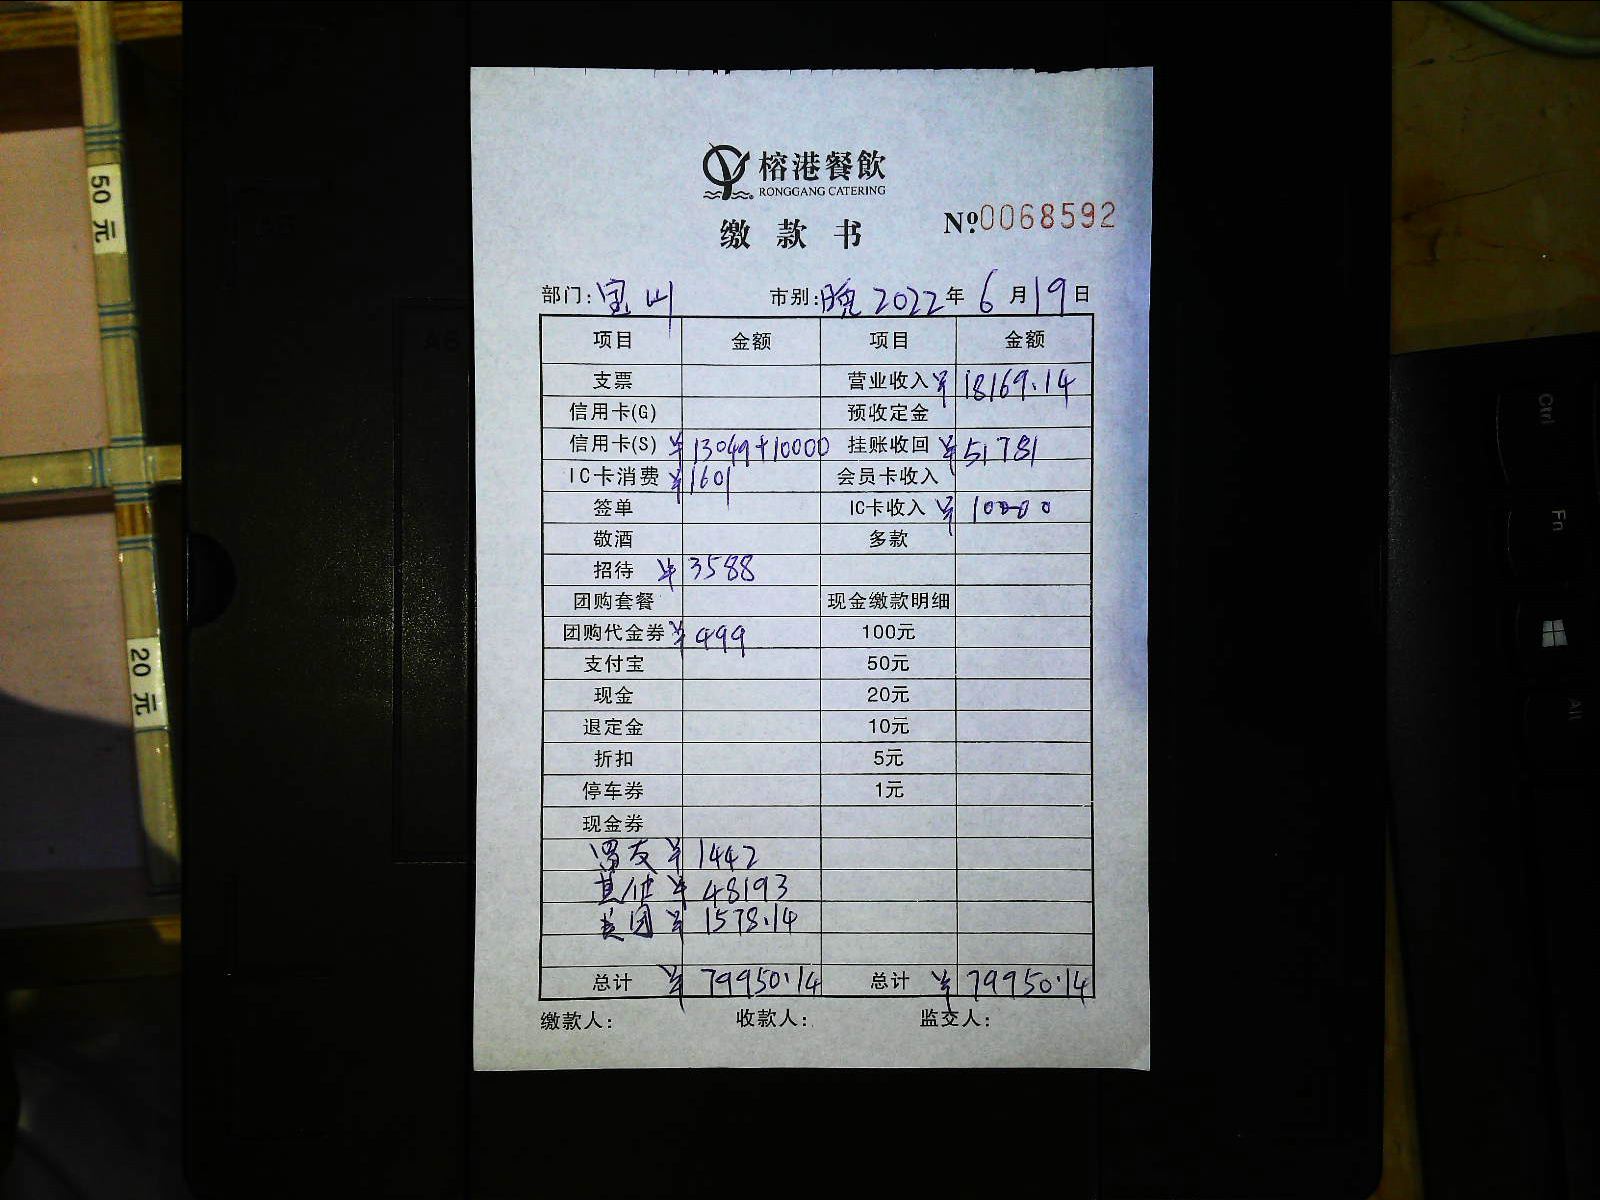 50元
20元
榕港餐飲
RONGGANG CATERING
缴款书
№0068592
部门:宝山 市别:晚 2022年6月19日
项目 金额 项目 金额
支票 营业收入 ¥18169.14
信用卡(G) 预收定金
信用卡(S) ¥13049+10000 挂账收回 ¥51781
IC卡消费 ¥1601 会员卡收入
签单 IC卡收入 ¥10000
敬酒 多款
招待 ¥3588
团购套餐 现金缴款明细
团购代金券 ¥499 100元
支付宝 50元
现金 20元
退定金 10元
折扣 5元
停车券 1元
现金券
¥1442
其他 ¥48193
美团 ¥1578.14
总计 ¥79950.14 总计 ¥79950.14
缴款人: 收款人: 监交人:
Ctrl
Fn
Alt
A6